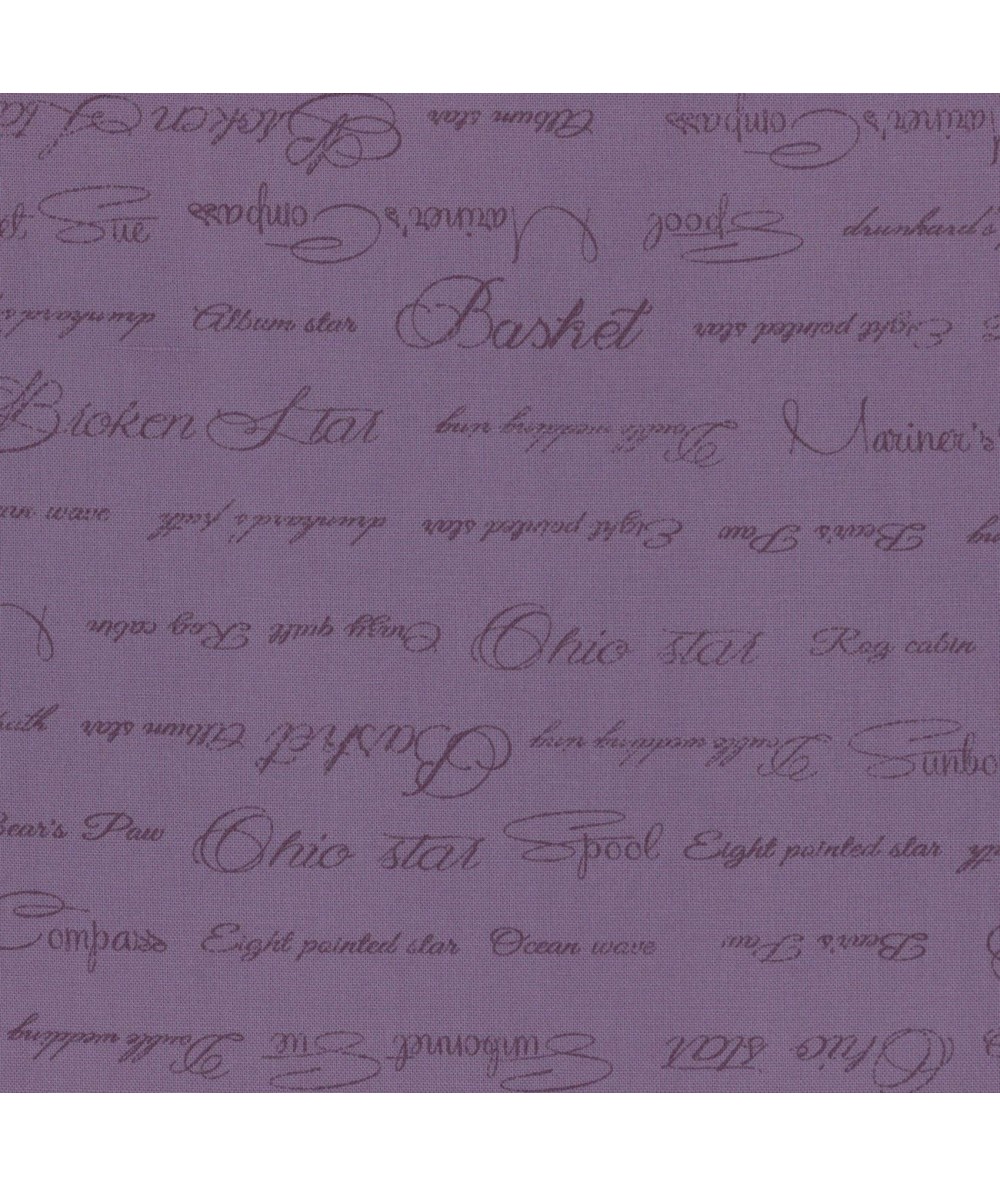 Mariner's Compass Album star Broken Star
Sue Mariner's Compass Spool drunkard's
drunkard's Album star Basket Eight pointed star
Broken Star Double wedding ring Mariner's
wave drunkard's path Eight pointed star Bear's Paw
Crazy quilt Rog cabin Ohio star Rog cabin
Album star Basket Double wedding ring Sunbo
Bear's Paw Ohio star Spool Eight pointed star
Compass Eight pointed star Ocean wave Bear's Paw
Double wedding Sunbonnet Sue Ohio star